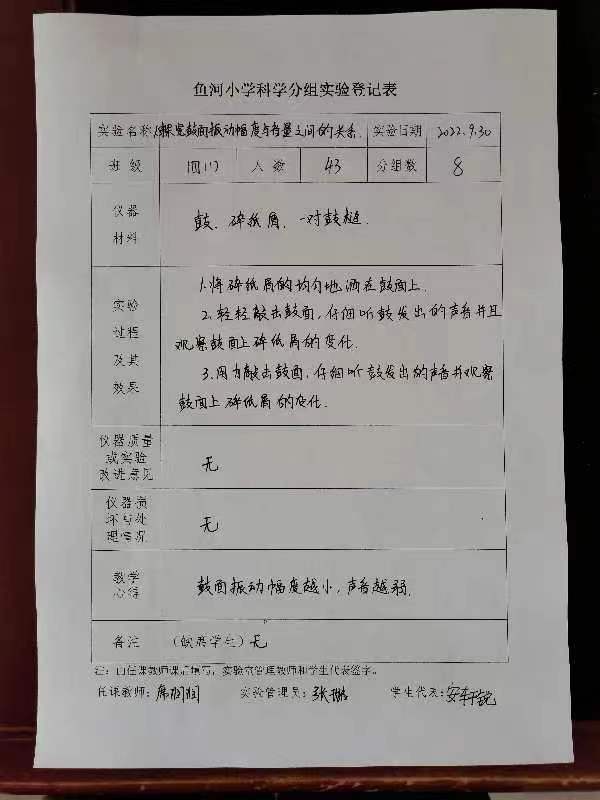 鱼河小学科学分组实验登记表
实验名称 探究鼓面振动幅度与音量之间的关系. 实验日期 2022.9.30
班 级 四(1) 人 数 43 分组数 8
仪器
材料
鼓、碎纸屑、一对鼓槌.
实验
过程
及其
效果
1.将碎纸屑的均匀地洒在鼓面上.
2.轻轻敲击鼓面,仔细听鼓发出的声音并且
观察鼓面上碎纸屑的变化.
3.用力敲击鼓面,仔细听鼓发出的声音并观察
鼓面上碎纸屑的变化.
仪器质量
或实验
改进意见
无
仪器损
坏与处
理情况
无
教学
心得
鼓面振动幅度越小,声音越弱.
备注 (缺席学生) 无
注:由任课教师课后填写,实验室管理教师和学生代表签字。
任课教师: 实验管理员:张 学生代表:安轩锐